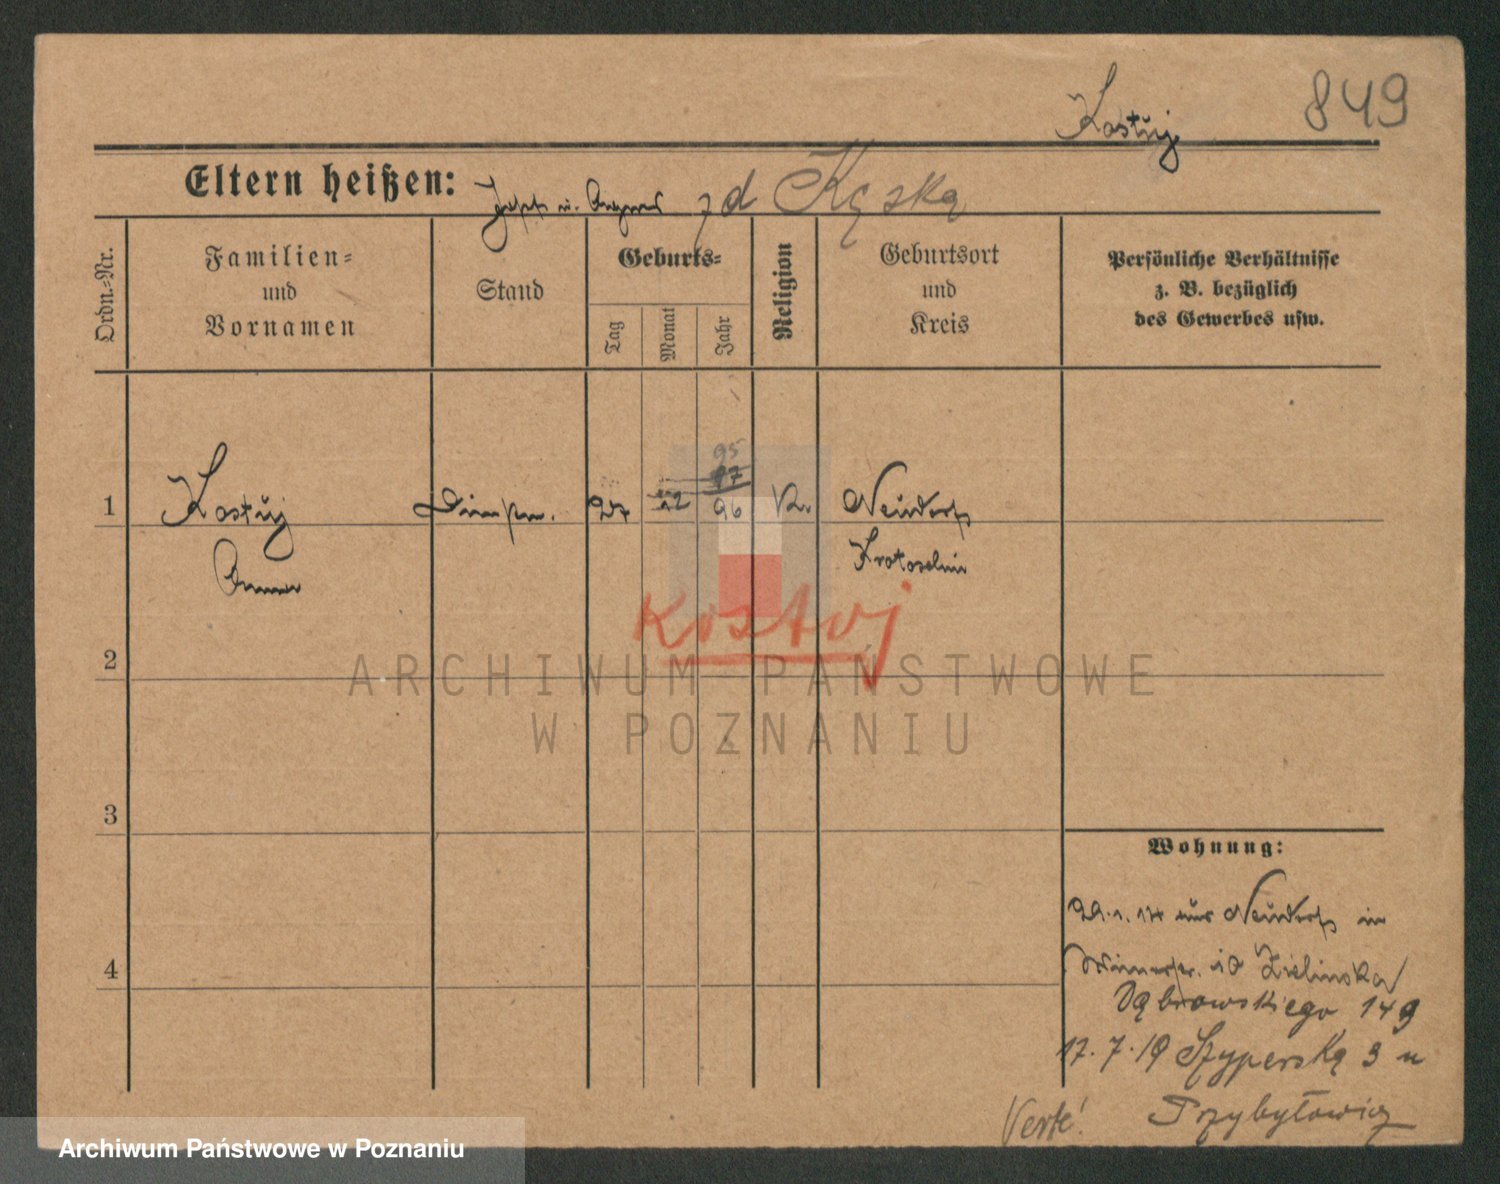 849
Kostuj
Eltern heißen: Josef u. Agnes zd Kęska
Ordn.-Nr.
Familien-
und
Vornamen
Stand
Geburts-
Tag
Monat
Jahr
Religion
Geburtsort
und
Kreis
Persönliche Verhältnisse
z. B. bezüglich
des Gewerbes usw.
95
97
1 Kostuj 27 12 96 K. Neudorf
Anna Krotoschin
Kostoj
2
ARCHIWUM PAŃSTWOWE
W POZNANIU
3
Wohnung:
aus Neudorf in
4
10 Zielinska
Dąbrowskiego 149
17.7.19 Szyperska 3 u
Verte! Przybyłowicz
Archiwum Państwowe w Poznaniu